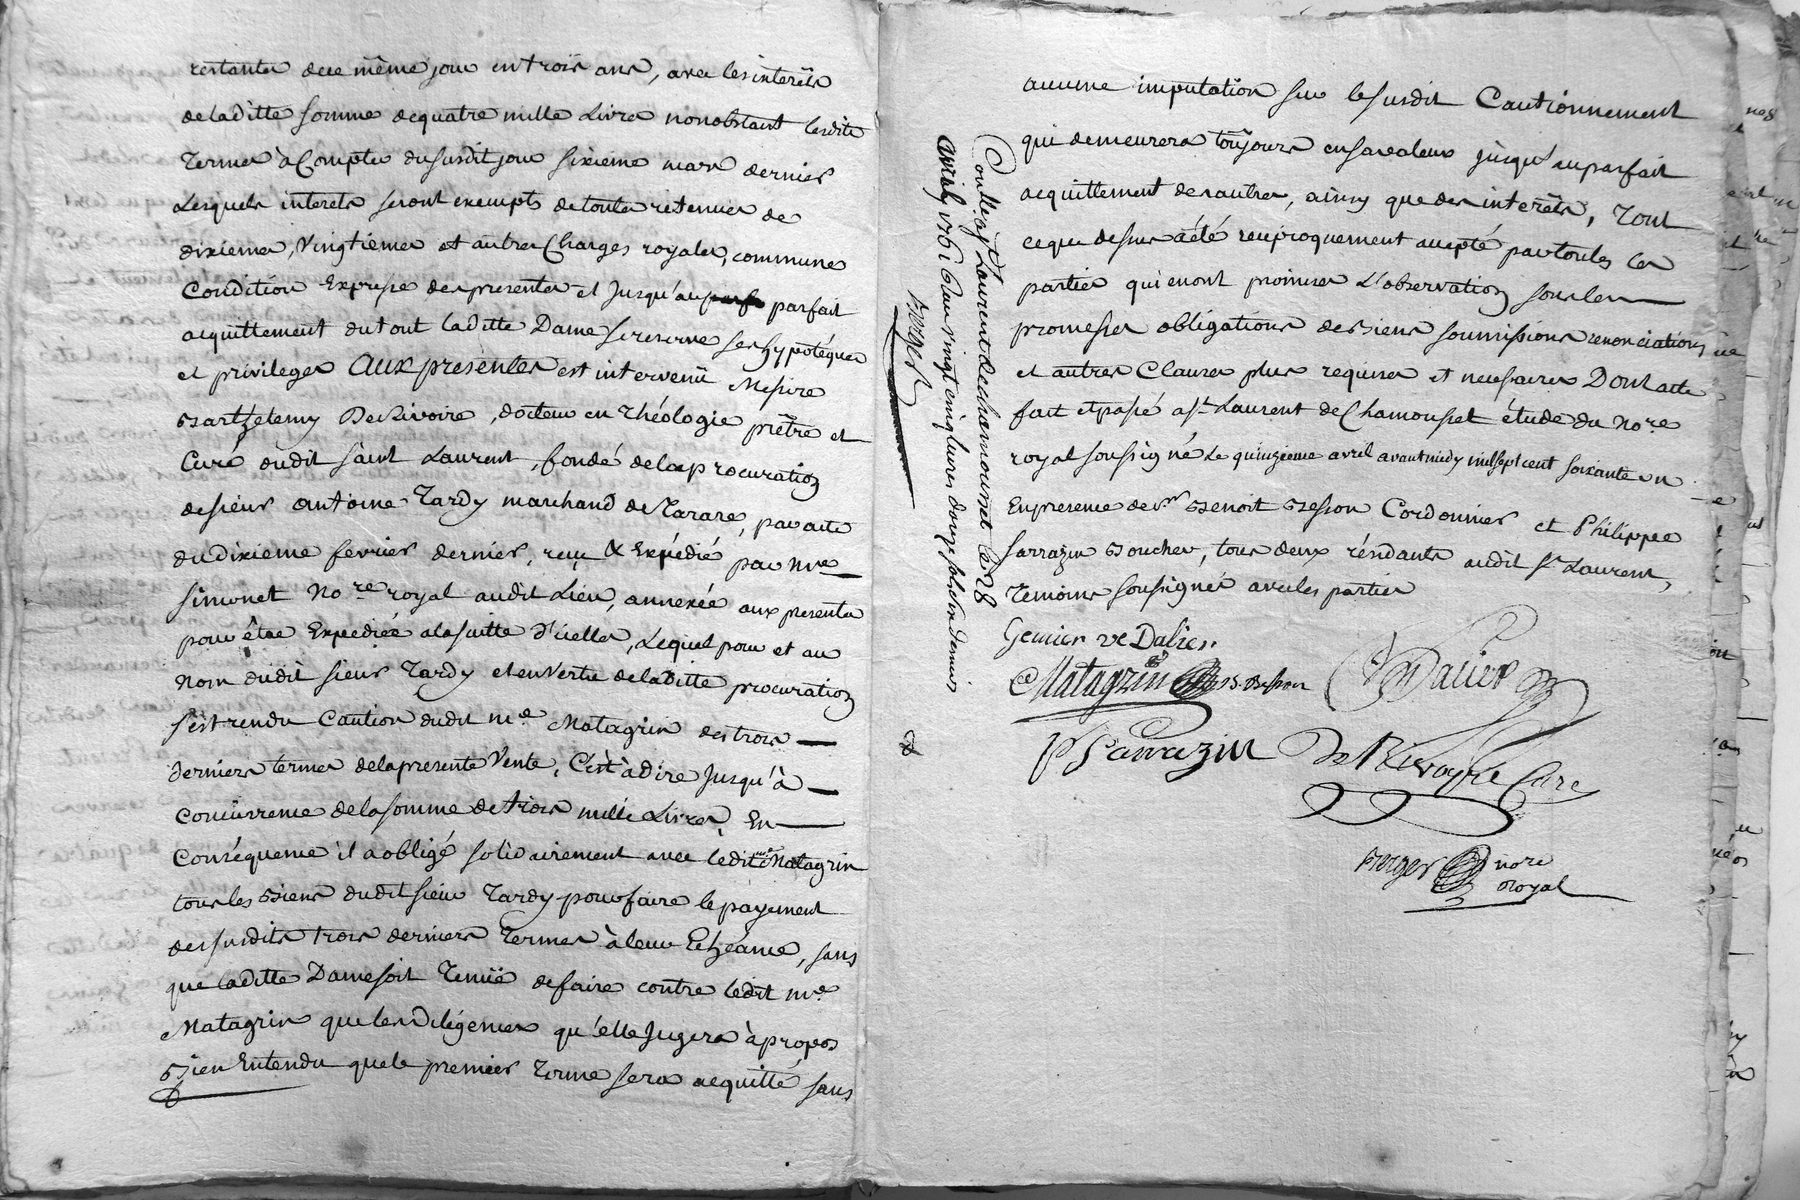 restantes de ce même jour en trois ans, avec les interêts
de laditte somme de quatre mille Livres nonobstant lesdits
Termes à Compter du susdit jour sixieme mars dernier
Lesquels interets seront exempts de toutes retenues de
dixiemes, Vingtiemes et autres Charges royales, commune
Condition Expresse des presentes et Jusqu'au parfait
acquittement du tout laditte Dame se reserve ses hypotéques
et privileges AUX presentes est intervenü Messire
Barthelemy De Rivoire, docteur en Théologie prêtre et
Curé dudit saint Laurent, fondé de la procuration
de sieur Antoine Tardy marchand de Tarare, par acte
du dixieme fevrier dernier, reçu & Expédié par Me
simonet Nore royal audit Lieu, annexée aux presentes
pour être Expediée a la suitte d'icelles, Lequel pour et au
Nom dudit sieur Tardy et en Vertu de laditte procuration
s'est rendu Caution dudit me Matagrin des trois
derniers termes de la presente Vente, C'est à dire Jusqu'à
Concurrence de la somme de trois mille Livres, En
Conséquence il a obligé solidairement avec ledit me Matagrin
tous les Biens dudit sieur Tardy pour faire le payement
des susdits trois derniers Termes à leur Echéance, sans
que laditte Dame soit Tenüe de faire contre ledit me
Matagrin que les Diligences qu'elle Jugera à propos
Bien Entendu que le premier Terme sera acquitté sans
aucune imputation sur le susdit Cautionnement
qui demeurera toujours en sa valeur jusqu'au parfait
acquittement des autres, ainsy que des interêts, Tout
ce que dessus a été reciproquement accepté par toutes les
parties qui en ont promises L'observation sous les
promesses obligations de Biens soumissions renonciations
et autres Clauses plus requises et necessaires Dont acte
fait et passé a St Laurent de Chamousset étude du Nore
royal soussigné Le quinzieme avril avant midy mil sept cent soixante un
En presence de sr Benoit Besson Cordonnier et Philippe
Sarrazin Boucher, tous deux résidants audit St Laurent,
Temoins soussignés avec les parties
Gemier ve Dalier
Matagrin B. Besson Dalier
P Sarrazin De Rivoyre Curé
Berger nore
Royal
Con.lle a St Laurent de chamousset le 28
avril 1761 Reçu vingt cinq livres douze sols dix deniers
Berger